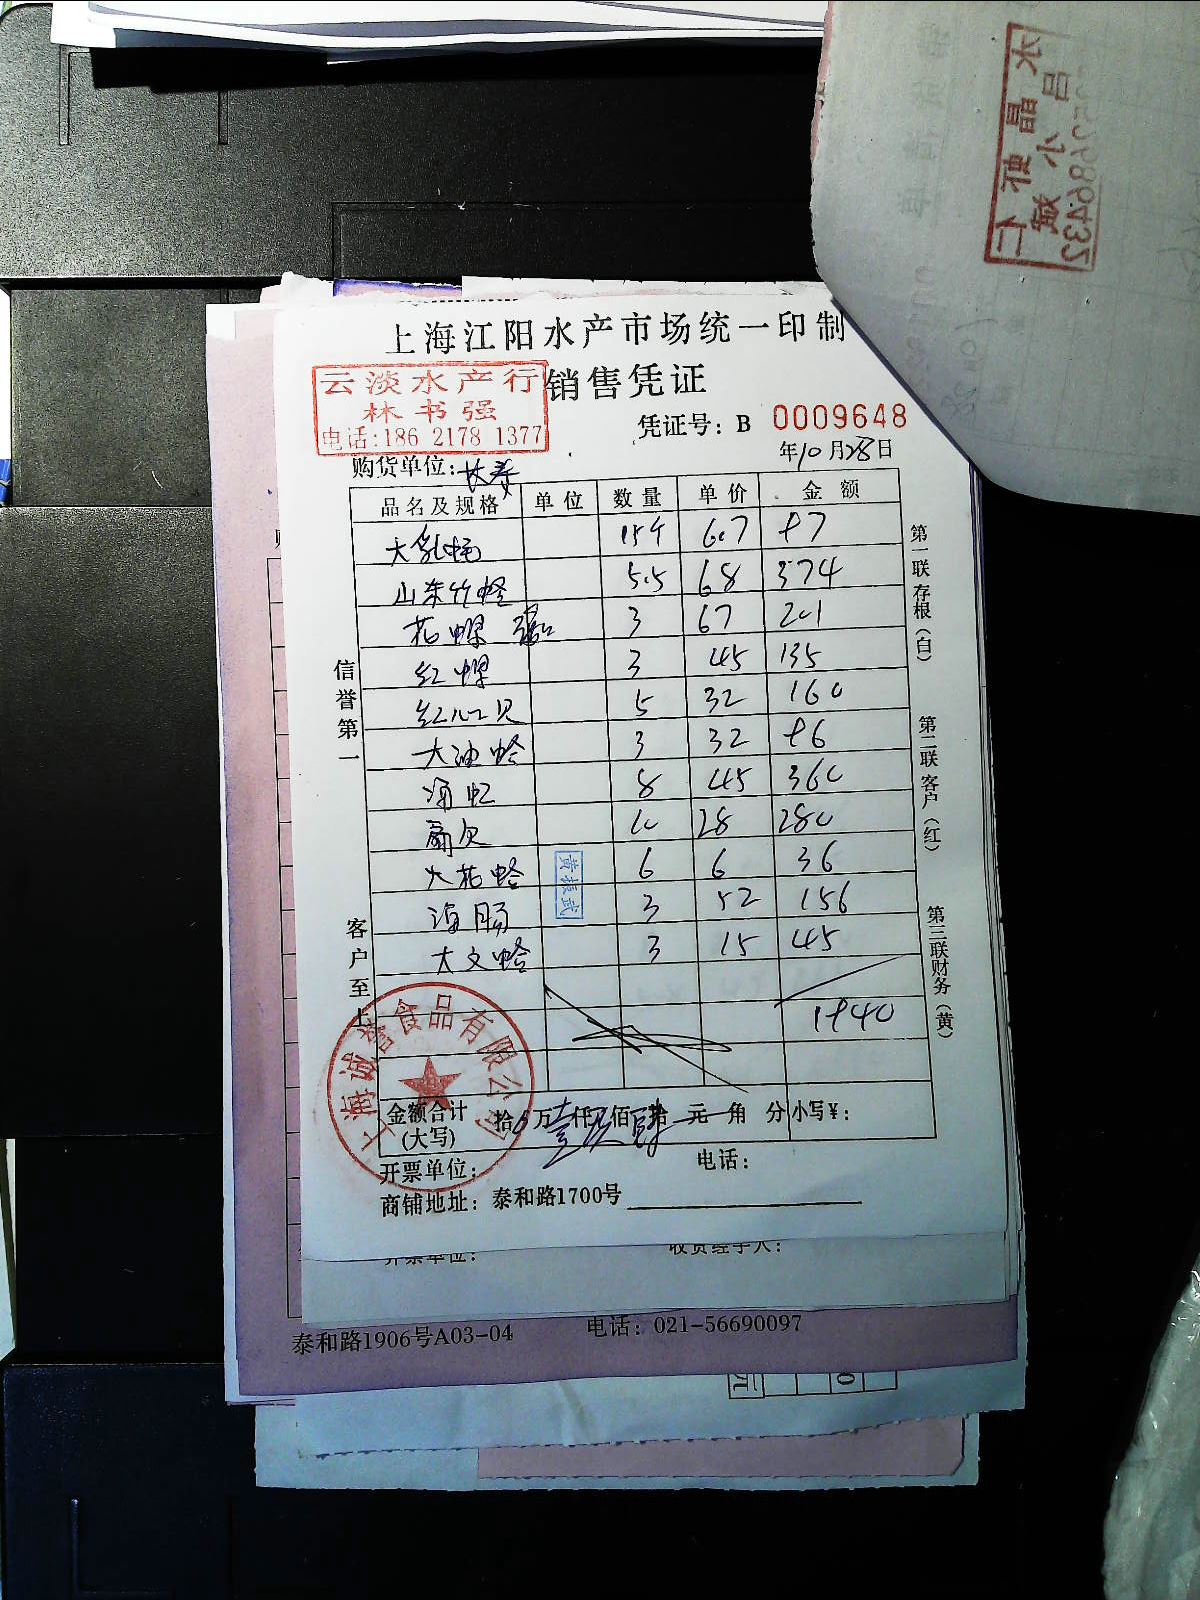 上海江阳水产市场统一印制
销售凭证
云淡水产行
林书强
电话:186 2178 1377
凭证号: B 0009648
年10月28日
购货单位:长泰
品名及规格 单位 数量 单价 金额
大乳蚝 15个 6.7 97
山东竹蛏 5.5 68 374
花螺 3 67 201
红螺 3 45 135
红心贝 5 32 160
大油蛤 3 32 96
海虹 8 45 360
扇贝 10 28 280
大花蛤 6 6 36
海肠 3 52 156
大文蛤 3 15 45
1940
金额合计 拾 万壹仟 佰 拾 元 角 分 小写¥:
(大写)
开票单位: 电话:
商铺地址: 泰和路1700号
信誉第一
客户至上
第一联存根(白)
第二联客户(红)
第三联财务(黄)
上海诚誉食品有限公司
开票单位: 收货经手人:
泰和路1906号A03-04 电话: 021-56690097
元 0